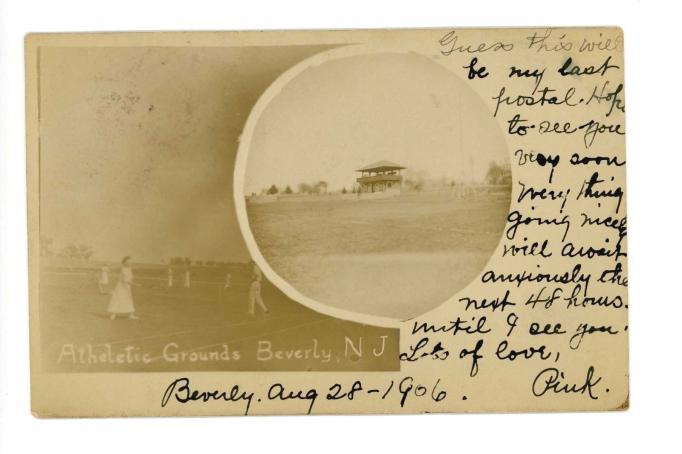 Guess this will
be my last
postal. Hope
to see you
very soon
Every thing
going nicely
will await
anxiously the
next 48 hours.
until I see you.
Lots of love,
Pink.
Atheletic Grounds Beverly, NJ
Beverly. Aug 28-1906.